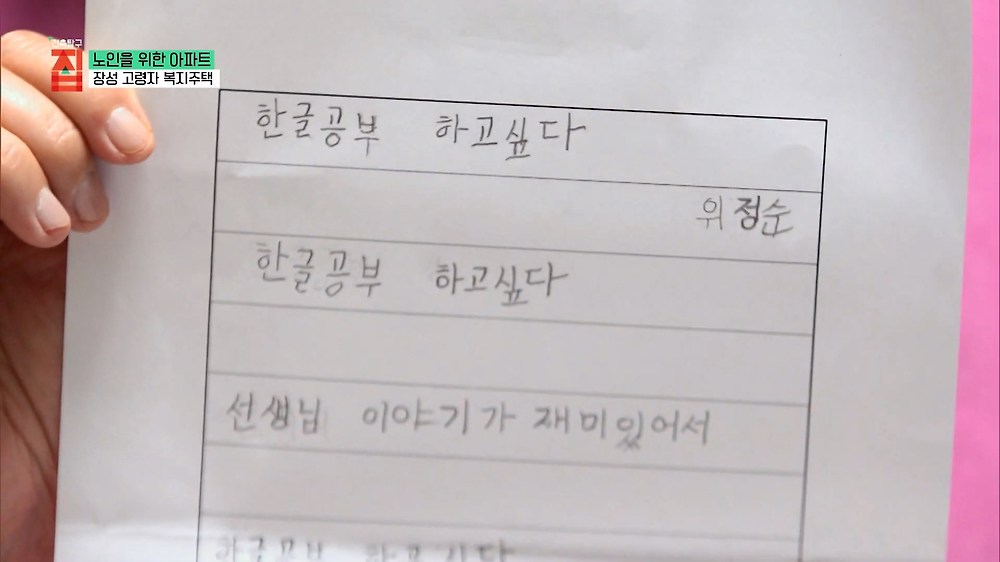 집
노인을 위한 아파트
장성 고령자 복지주택
한글공부 하고싶다
위정순
한글공부 하고싶다
선생님 이야기가 재미있어서